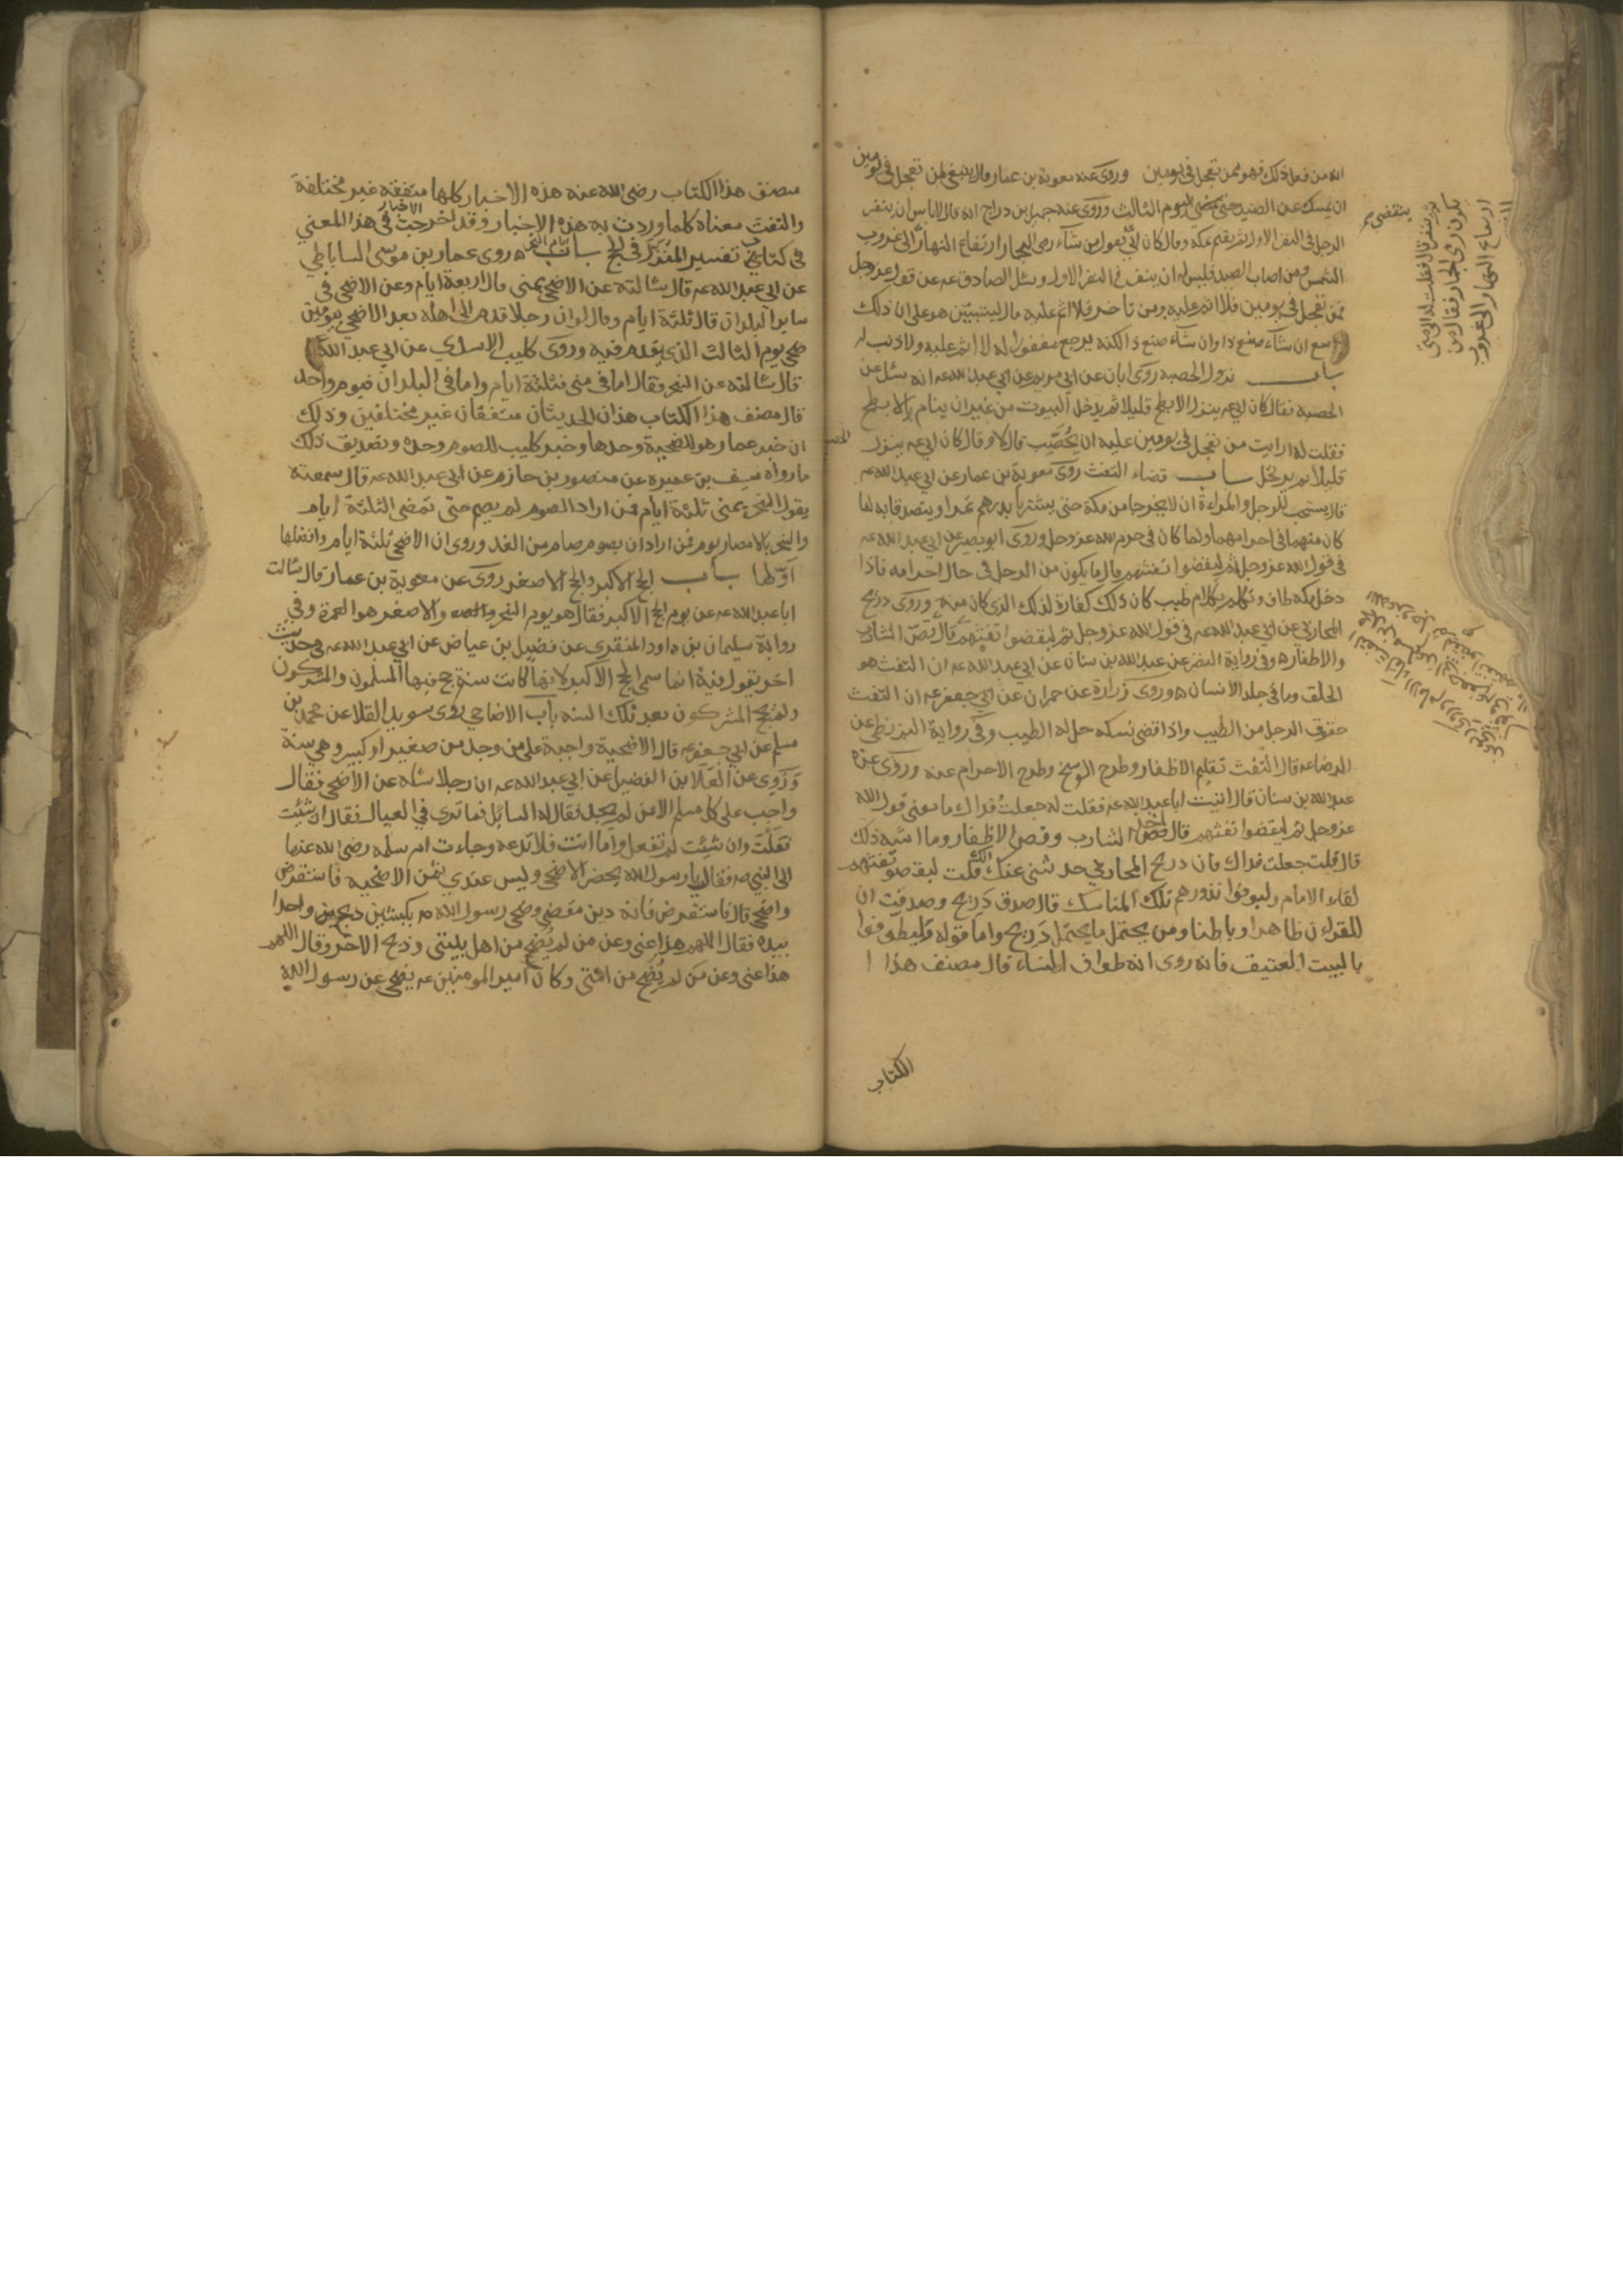 انه من فعل ذلك فهو ممن تعجل فى يومين وروى عنه معوية بن عمار قال ينبغى لمن تعجل فى يومين
ان يمسك عن الصيد حتى يمضى اليوم الثالث وروى عنه جميل بن دراج انه قال لا باس ان ينفر
الرجل فى النفر الاول ثم يقيم بمكة وقال كان ابى يقول من شآء رمى الجمار ارتفاع النهار الى غروب
الشمس ومن اصاب الصيد فليس له ان ينفر فى النفر الاول وسئل الصادق عه عن قول الله عز وجل
فمن تعجل فى يومين فلا اثم عليه ومن تأخر فلا اثم عليه قال ليتبيّن هو على ان ذلك
واسع ان شآء صنع ذا وان شآء صنع ذا لكنه يرجع مغفورا له لا اثم عليه ولا ذنب له
باب نزول الحصبه روى ابان عن ابى مريم عن ابى عبد الله عه انه سئل عن
الحصبه فقال كان ابى عه ينزل الابطح قليلا ثم يدخل البيوت من غير ان ينام بالابطح
فقلت له ارايت من تعجل فى يومين عليه ان يُحصّب قال لا وقال كان ابى عه ينزل
قليلا ثم يدخل باب قضاء التفث روى معوية بن عمار عن ابى عبد الله عه
قال يستحب للرجل والمراءة ان لا يخرجا من مكة حتى يشتريا بدرهم تمرا ويتصدقا به لما
كان منهما فى احرامهما ولما كان فى حرم الله عز وجل وروى ابو بصير عن ابى عبد الله عه
فى قول الله عز وجل ثم ليقضوا تفثهم قال ما يكون من الرجل فى حال احرامه فاذا
دخل مكه طاف وتكلم بكلام طيب كان ذلك كفارة لذلك الذى كان منه وروى ذريح
المحاربى عن ابى عبد الله عه فى قول الله عز وجل ثم ليقضوا تفثهم قال قصّ الشارب
والاظفار وفى رواية النضر عن عبد الله بن سنان عن ابى عبد الله عه ان التفث هو
الحلق وما فى جلد الانسان وروى زرارة عن حمران عن ابى جعفر عه ان التفث
حقوق الرجل من الطيب واذا قضى نسكه حل له الطيب وفى رواية البزنطى عن
الرضا عه قال التفث تقليم الاظفار وطرح الوسخ وطرح الاحرام عنه وروى عن
عبد الله بن سنان قال اتيت ابا عبد الله عه فقلت له جعلتُ فداك ما معنى قول الله
عز وجل ثم ليقضوا تفثهم قال اخذ الشارب وقص الاظفار وما اشبه ذلك
قال قلت جعلت فداك فان ذريح المحاربى حدثنى عنك انك قلت ليقضوا تفثهم
لقاء الامام وليوفوا نذورهم تلك المناسك قال صدق ذَريح وصدقت ان
للقراءن ظاهرا وباطنا ومن يحتمل ما يحتمل ذَريح واما قوله وليطوفوا
بالبيت العتيق فانه روى انه طواف النساء قال مصنف هذا
الكتاب
مصنف هذا الكتاب رضى الله عنه هذه الاخبار كلها متفقه غير مختلفة
والتفث معناه كلما وردت به هذه الاخبار وقد اخرجت الاخبار فى هذا المعنى
فى كتاب تفسير المُنزل فى الحج باب ايام النحر روى عمار بن موسى الساباطي
عن ابى عبد الله عه قال سالته عن الاضحى بمنى قال اربعة ايام وعن الاضحى فى
ساير البلدان قال ثلثة ايام وقال لو ان رجلا قدم الى اهله بعد الاضحى بيومين
ضحى يوم الثالث الذى يقدم فيه وروى كليب الاسدي عن ابى عبد الله
قال سالته عن النحر فقال اما فى منى فثلثة ايام واما فى البلدان فيوم واحد
قال مصنف هذا الكتاب هذان الحديثان متفقان غير مختلفين وذلك
ان خبر عمار هو للضحية وحدها وخبر كليب للصوم وحده وتصديق ذلك
ما رواه سيف بن عميره عن منصور بن حازم عن ابى عبد الله عه قال سمعته
يقول النحر بمنى ثلثة ايام فمن اراد الصوم لم يصم حتى تمضى الثلثة ايام
والنحر بالامصار يوم فمن اراد ان يصوم صام من الغد وروى ان الاضحى ثلثة ايام وافضلها
اوّلها باب الحج الاكبر والحج الاصغر روى عن معوية بن عمار قال سالت
ابا عبد الله عه عن يوم الحج الاكبر فقال هو يوم النحر والاصغر هو العمرة وفى
رواية سليمان بن داود المنقري عن فضيل بن عياض عن ابى عبد الله عه فى حديث
اخر يقول فيه انما سمى الحج الاكبر لانها كانت سنة حج فيها المسلمون والمشركون
ولم يحج المشركون بعد تلك السنه باب الاضاحي روى سويد القلا عن محمد بن
مسلم عن ابى جعفر عه قال الاضحية واجبة على من وجد من صغير او كبير وهى سنة
وَرُوى عن العَلا بن الفضيل عن ابى عبد الله عه ان رجلا ساله عن الاضحى فقال
واجب على كل مسلم الا من لم يجد فقال له السائل فما ترى فى العيال فقال ان شئت
فعَلتَ وان شئت لم تفعل واما انت فلا تدعه وجاءت ام سلمه رضى الله عنها
الى النبي صه فقال يا رسول الله يحضر الاضحى وليس عندي ثمن الاضحيه فاستقرض
واضحى قال فاستقرض فانه دين مقضى وضحى رسول الله صه بكبشين ذبح واحدا
بيده فقال اللهم هذا عنى وعن من لم يُضَحِ من اهل بيتى وذبح الاخر وقال اللهم
هذا عنى وعن من لم يُضَحِ من امّتى وكان امير المومنين عه يضحى عن رسول الله